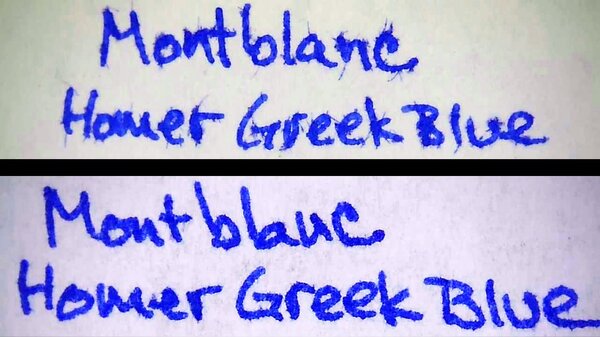 Montblanc
Homer Greek Blue
Montblanc
Homer Greek Blue